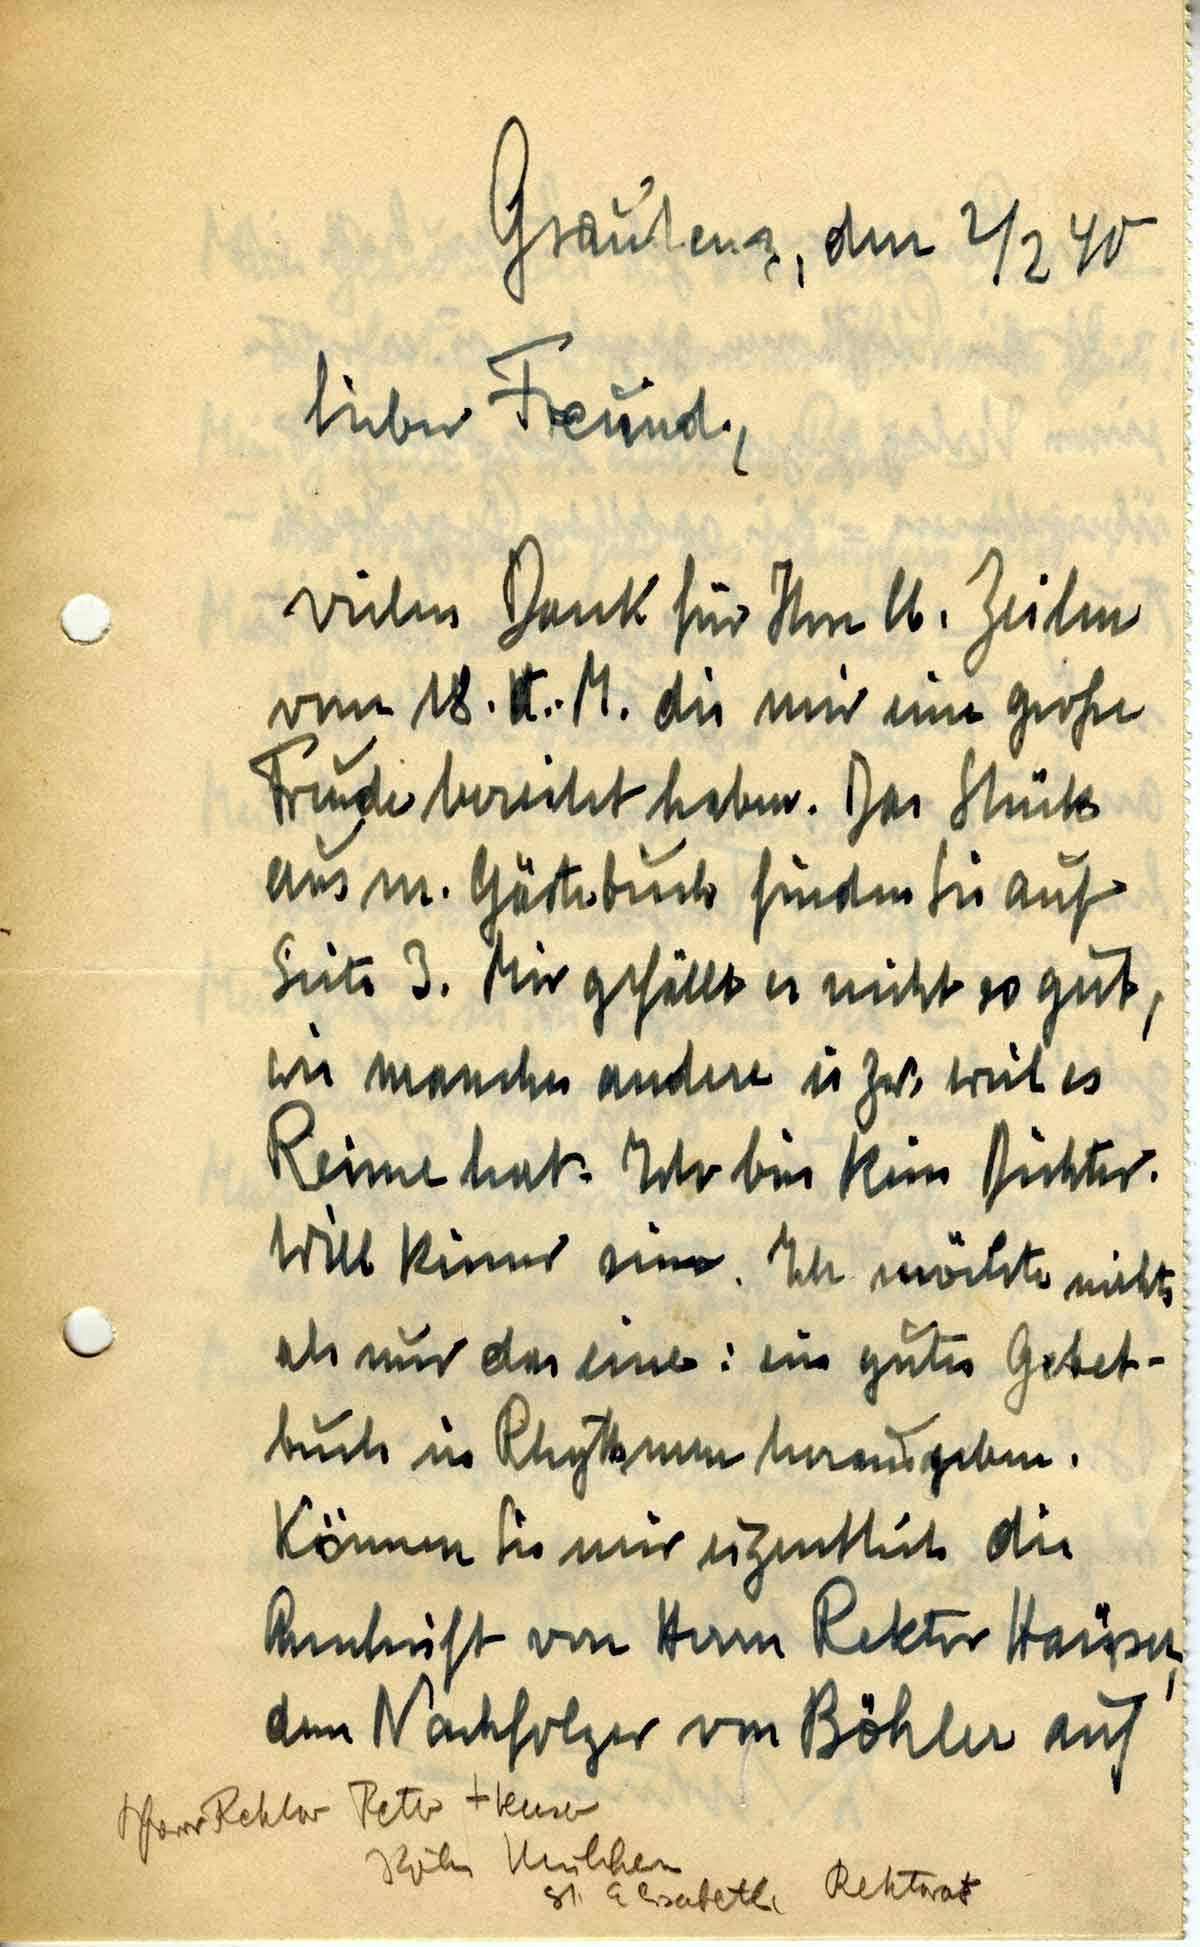 Graudenz, den 2/2 40
lieber Freund,
vielen Dank für Ihre lb. Zeilen
vom 18. v. M. die mir eine große
Freude bereitet haben. Das Stück
aus m. Gästebuch finden Sie auf
Seite 3. Mir gefällt es nicht so gut,
wie manches andere u zw. weil es
Reime hat. Ich bin kein Dichter.
Will keiner sein. Ich möchte nichts
als nur das eine: ein gutes Gebet-
buch in Rhythmen herausgeben.
Können Sie mir eigentlich die
Anschrift von Herrn Rektor Häuser,
dem Nachfolger von Böhler auf
Pfarrer Rektor Peter Heuser
Köln
St. Elisabeth Rektorat